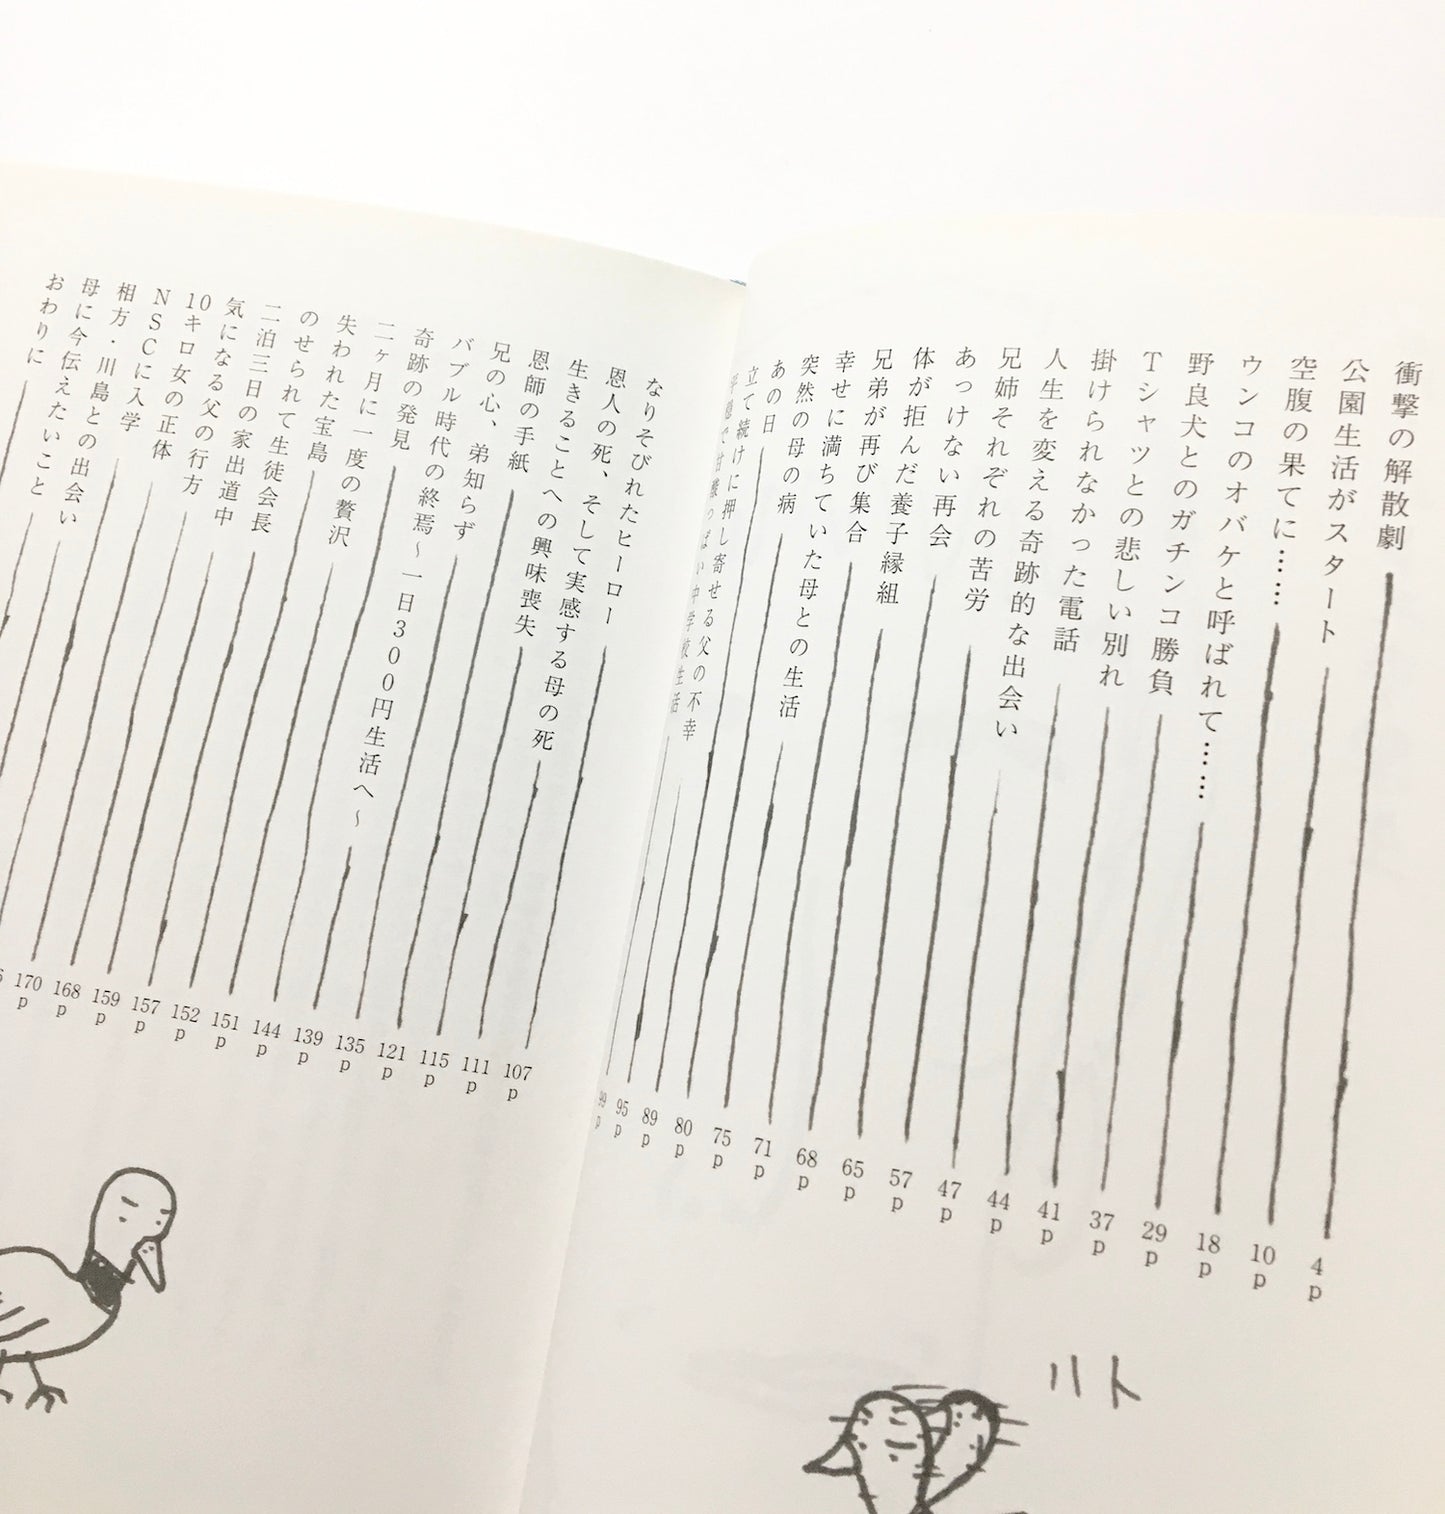 衝撃の解散劇 4p
公園生活がスタート 10p
空腹の果てに…… 18p
ウンコのオバケと呼ばれて…… 29p
野良犬とのガチンコ勝負 37p
Tシャツとの悲しい別れ 41p
掛けられなかった電話 44p
人生を変える奇跡的な出会い 47p
兄姉それぞれの苦労 57p
あっけない再会 65p
体が拒んだ養子縁組 68p
兄弟が再び集合 71p
幸せに満ちていた母との生活 75p
突然の母の病 80p
あの日 89p
立て続けに押し寄せる父の不幸 95p
平穏で甘酸っぱい中学校生活 99p
ハト
なりそびれたヒーロー 107p
恩人の死、そして実感する母の死 111p
生きることへの興味喪失 115p
恩師の手紙 121p
兄の心、弟知らず 135p
バブル時代の終焉～一日300円生活へ～ 139p
奇跡の発見 144p
二ヶ月に一度の贅沢 151p
失われた宝島 152p
のせられて生徒会長 157p
二泊三日の家出道中 159p
気になる父の行方 168p
10キロ女の正体 170p
NSCに入学
相方・川島との出会い
母に今伝えたいこと
おわりに